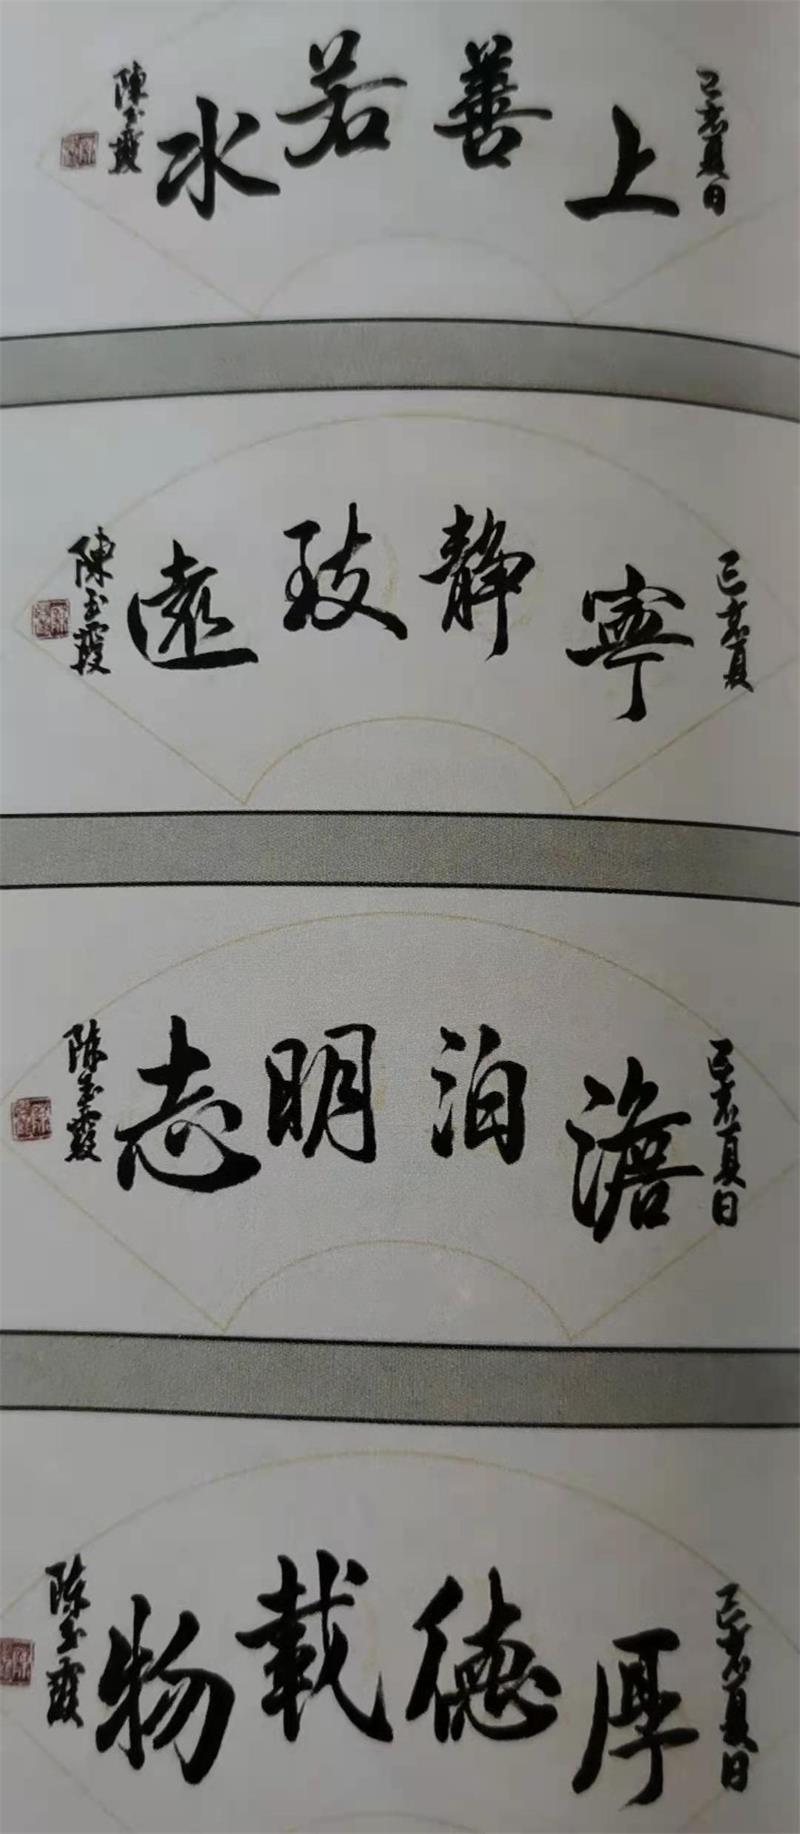 己亥夏日
上善若水
陳玉霞
己亥夏
寧静致遠
陳玉霞
己亥夏日
澹泊明志
陈玉霞
己亥夏日
厚德載物
陈玉霞